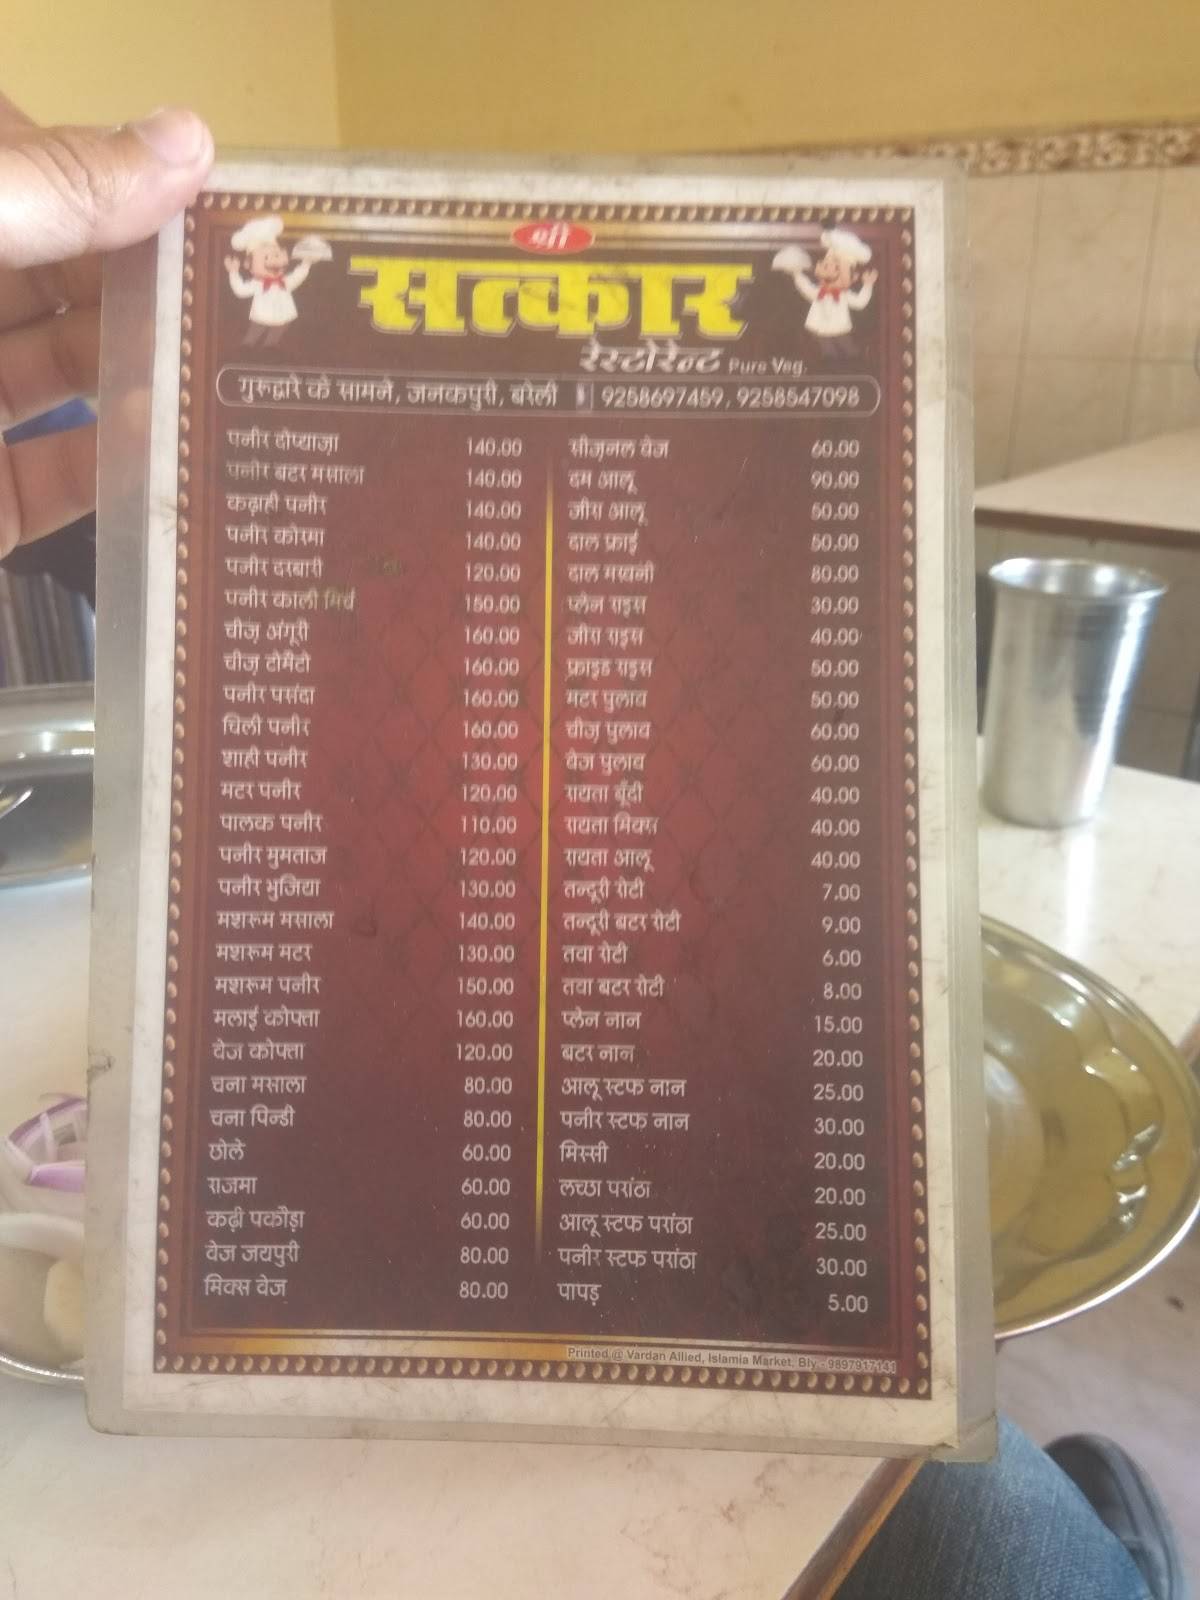 श्री
सत्कार
रेस्टोरेन्ट Pure Veg.
गुरुद्वारे के सामने, जनकपुरी, बरेली 9258697459, 9258547098
पनीर दोप्याज़ा 140.00
पनीर बटर मसाला 140.00
कढ़ाही पनीर 140.00
पनीर कोरमा 140.00
पनीर दरबारी 120.00
पनीर काली मिर्च 150.00
चीज़ अंगूरी 160.00
चीज़ टोमैटो 160.00
पनीर पसंदा 160.00
चिली पनीर 160.00
शाही पनीर 130.00
मटर पनीर 120.00
पालक पनीर 110.00
पनीर मुमताज 120.00
पनीर भुजिया 130.00
मशरूम मसाला 140.00
मशरूम मटर 130.00
मशरूम पनीर 150.00
मलाई कोफ्ता 160.00
वेज कोफ्ता 120.00
चना मसाला 80.00
चना पिन्डी 80.00
छोले 60.00
राजमा 60.00
कढ़ी पकौड़ा 60.00
वेज जयपुरी 80.00
मिक्स वेज 80.00
सीज़नल वेज 60.00
दम आलू 90.00
जीरा आलू 50.00
दाल फ्राई 50.00
दाल मखनी 80.00
प्लेन राइस 30.00
जीरा राइस 40.00
फ्राइड राइस 50.00
मटर पुलाव 50.00
चीज़ पुलाव 60.00
वेज पुलाव 60.00
रायता बूँदी 40.00
रायता मिक्स 40.00
रायता आलू 40.00
तन्दूरी रोटी 7.00
तन्दूरी बटर रोटी 9.00
तवा रोटी 6.00
तवा बटर रोटी 8.00
प्लेन नान 15.00
बटर नान 20.00
आलू स्टफ नान 25.00
पनीर स्टफ नान 30.00
मिस्सी 20.00
लच्छा परांठा 20.00
आलू स्टफ परांठा 25.00
पनीर स्टफ परांठा 30.00
पापड़ 5.00
Printed @ Vardan Allied, Islamia Market, Bly.- 9897917141